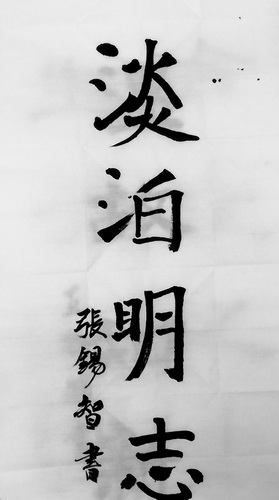 淡泊明志
張錫智書